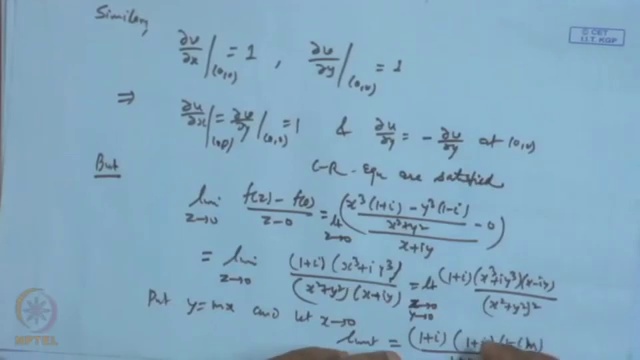 Similarly
© CET
I.I.T. KGP
∂v/∂x |(0,0) = 1 , ∂v/∂y |(0,0) = 1
⇒ ∂u/∂x |(0,0) = ∂v/∂y |(0,0) = 1 & ∂u/∂y = - ∂v/∂y at (0,0)
But C-R-Equ are satisfied
lim z→0 f(z) - f(0) / z-0 = lt z→0 ( x³(1+i) - y³(1-i) / x³+y² - 0 / x+iy )
= lim z→0 (1+i)(x³+iy³) / (x²+y²)(x+iy) = lt x→0 y→0 (1+i)(x³+iy³)(x-iy) / (x²+y²)²
Put y=mx and let x→0
limit = (1+i)
NPTEL